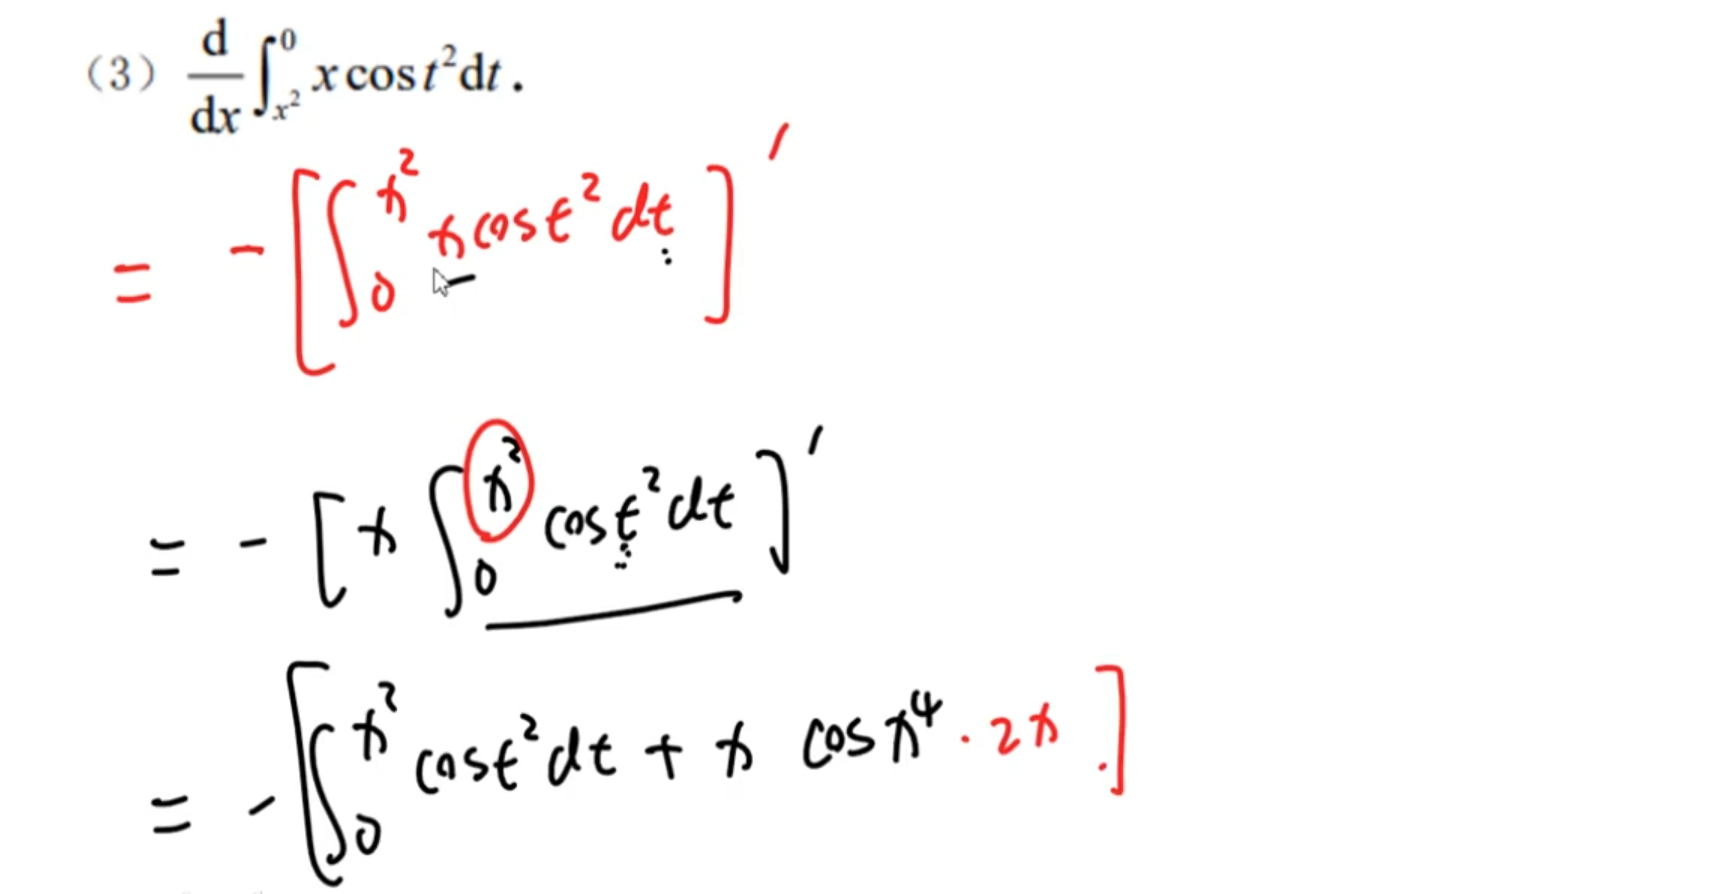 (3) d/dx ∫_{x²}^{0} x cos t² dt .
= - [ ∫_{0}^{x²} x cos t² dt ]′
= - [ x ∫_{0}^{x²} cos t² dt ]′
= - [ ∫_{0}^{x²} cos t² dt + x cos x⁴ · 2x ]